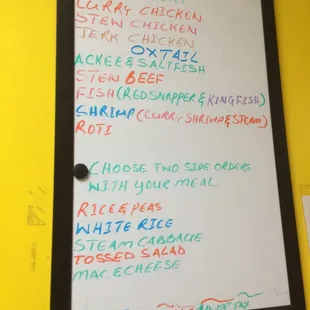 CURRY CHICKEN
STEW CHICKEN
JERK CHICKEN
OXTAIL
ACKEE & SALTFISH
STEW BEEF
FISH (RED SNAPPER & KINGFISH)
SHRIMP (CURRY SHRIMP & STEAM)
ROTI
CHOOSE TWO SIDE ORDERS
WITH YOUR MEAL:
RICE & PEAS
WHITE RICE
STEAM CABBAGE
TOSSED SALAD
MAC & CHEESE
TAX